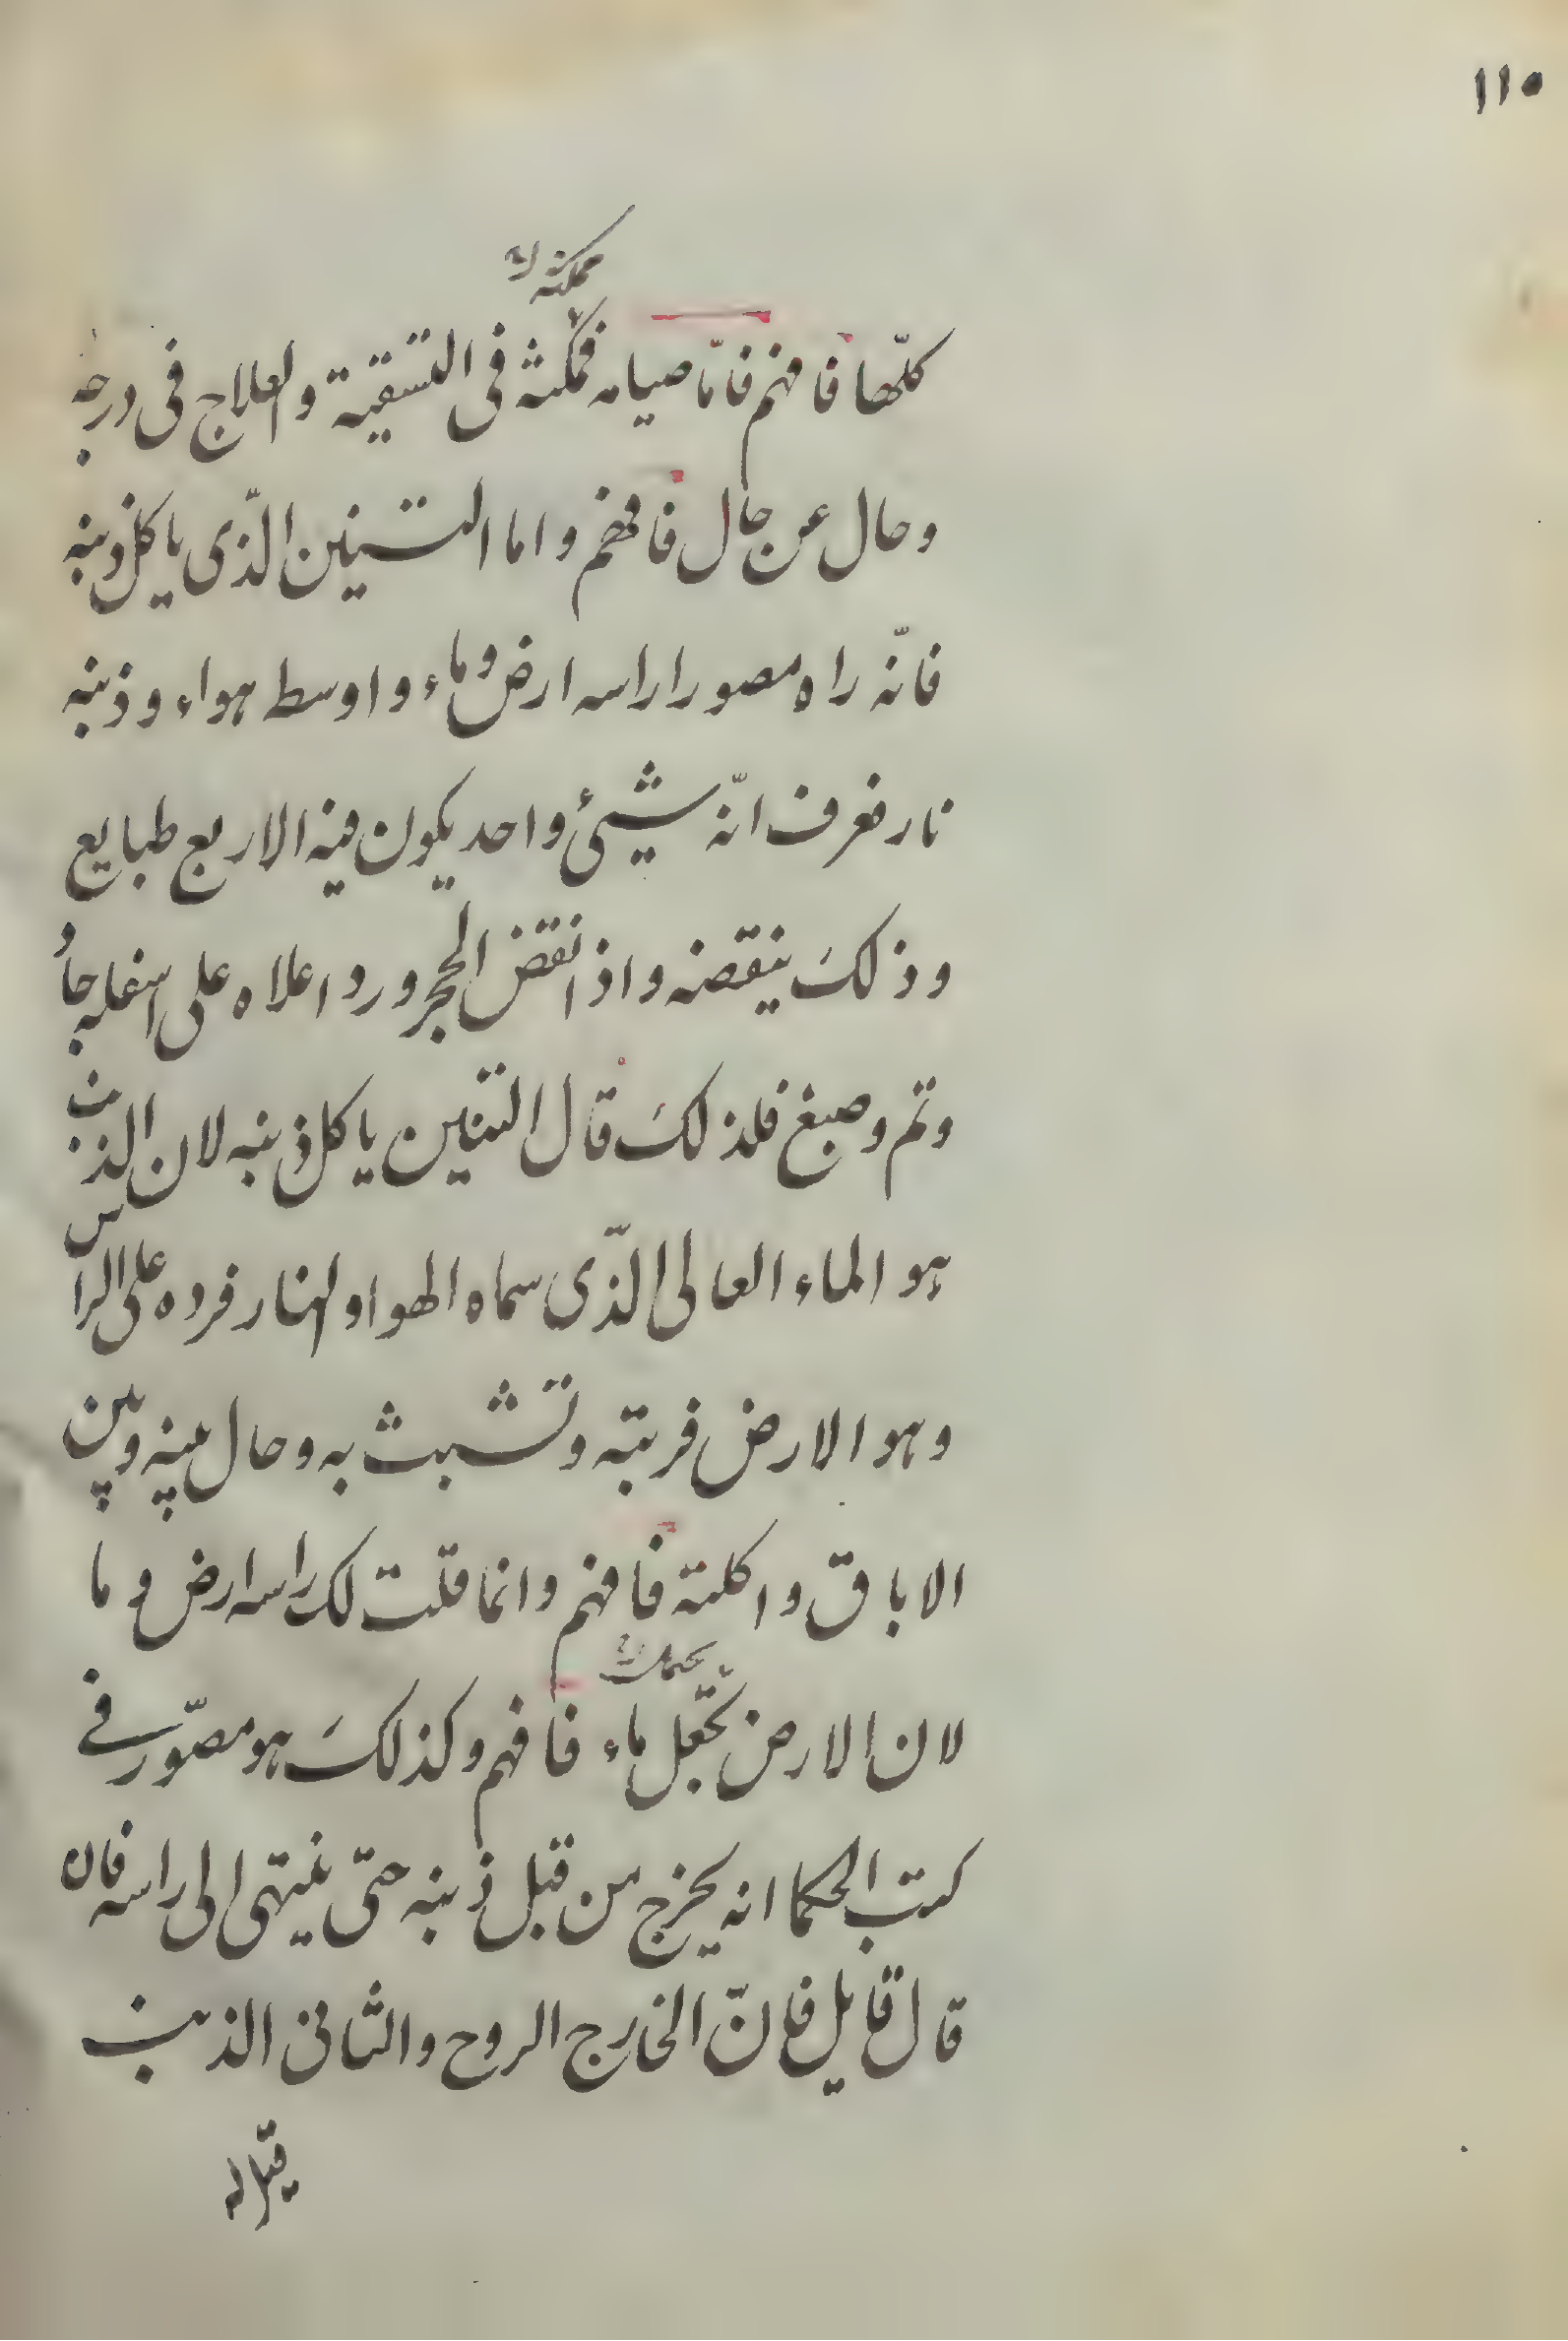 ١١٥
كلّها فافهم فامّا صيامه فمكثه فى التسقية والعلاج فى درجه
وحال عن حال فافهم واما التنين الّذى ياكل ذنبه
فانّه راه مصورا راسه ارض وماء واوسط هواء وذنبه
نار فعرف انّه شيئ واحد يكون فيه الاربع طبايع
وذلك ينقصه واذا نقض الحجر ورد اعلاه على اسفله جاد
وتم وصبغ فلذلك قال التنين ياكل ذنبه لان الذنب
هو الماء العالى الّذى سماه الهوا والنار فرده على الراس
وهو الارض فربته وتشبث به وحال بينه وبين
الاباق واكلته فافهم وانما قلت لك راسه ارض وما
لان الارض تجعل ماء فافهم وكذلك هو مصوّر فى
كتب الحكما انه يخرج من قبل ذنبه حتّى ينتهى الى راسه فان
قال قايل فانّ الخارج الروح والثانى الذنب
قيل له